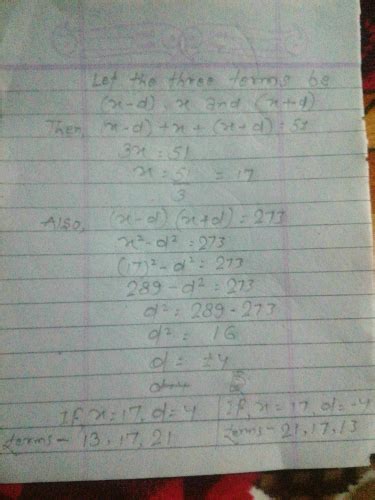 Let the three terms be
(x-d), x and (x+d)
Then, (x-d) + x + (x+d) = 51
3x = 51
x = 51/3 = 17
Also, (x-d) (x+d) = 273
x² - d² = 273
(17)² - d² = 273
289 - d² = 273
d² = 289 - 273
d² = 16
d = ±4
If, x = 17, d = 4
terms - 13, 17, 21
If, x = 17, d = -4
terms - 21, 17, 13